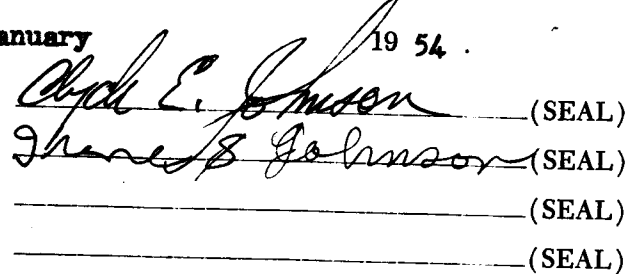 anuary 19 54.
Clyde E. Johnson (SEAL)
Irene S Johnson (SEAL)
(SEAL)
(SEAL)